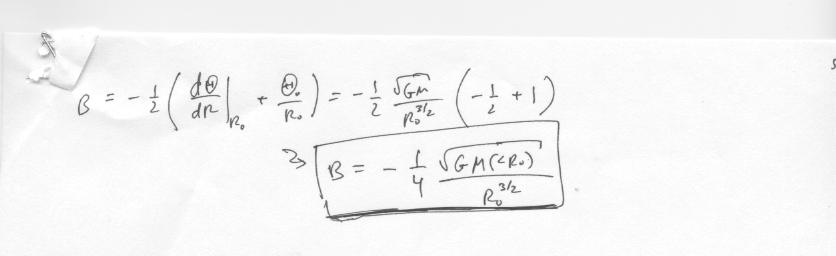 B = -1/2 ( dΘ/dR |_{R₀} + Θ₀/R₀ ) = -1/2 √GM/R₀^{3/2} ( -1/2 + 1 )
⇒ B = -1/4 √GM(<R₀)/R₀^{3/2}